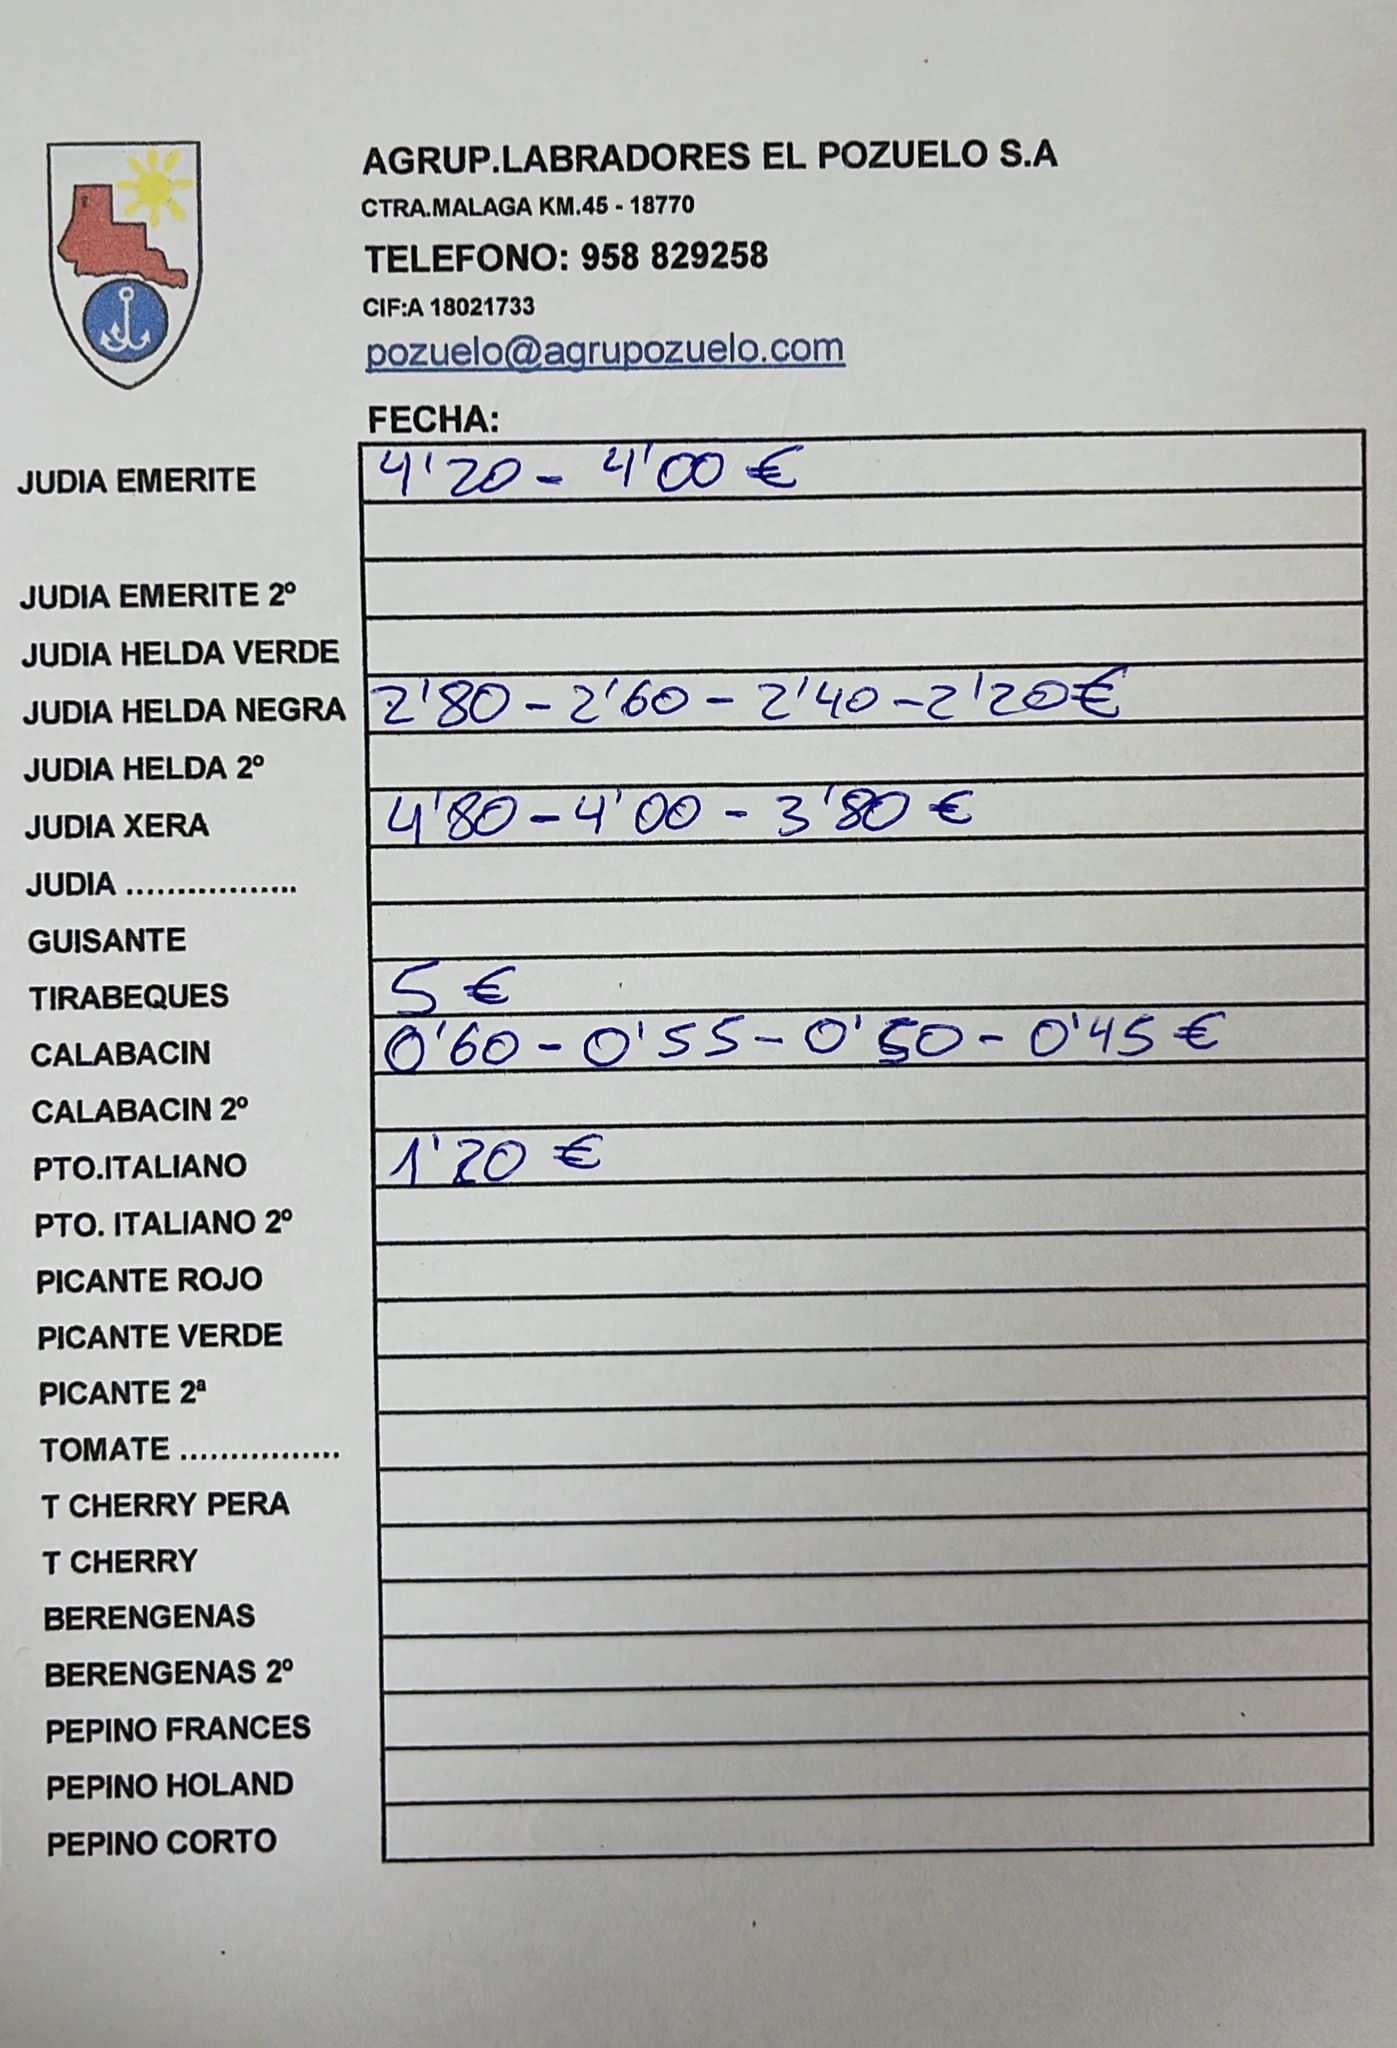 AGRUP.LABRADORES EL POZUELO S.A
CTRA.MALAGA KM.45 - 18770
TELEFONO: 958 829258
CIF:A 18021733
pozuelo@agrupozuelo.com
FECHA:
JUDIA EMERITE 4'20 - 4'00 €
JUDIA EMERITE 2º
JUDIA HELDA VERDE
JUDIA HELDA NEGRA 2'80 - 2'60 - 2'40 - 2'20 €
JUDIA HELDA 2º
JUDIA XERA 4'80 - 4'00 - 3'80 €
JUDIA .................
GUISANTE
TIRABEQUES 5 €
CALABACIN 0'60 - 0'55 - 0'50 - 0'45 €
CALABACIN 2º
PTO.ITALIANO 1'20 €
PTO. ITALIANO 2º
PICANTE ROJO
PICANTE VERDE
PICANTE 2ª
TOMATE ................
T CHERRY PERA
T CHERRY
BERENGENAS
BERENGENAS 2º
PEPINO FRANCES
PEPINO HOLAND
PEPINO CORTO